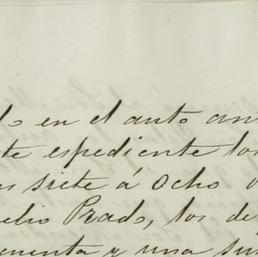 do en el auto an
te espediente los
es siete á ocho
elio Prado, los de
enenta y una su